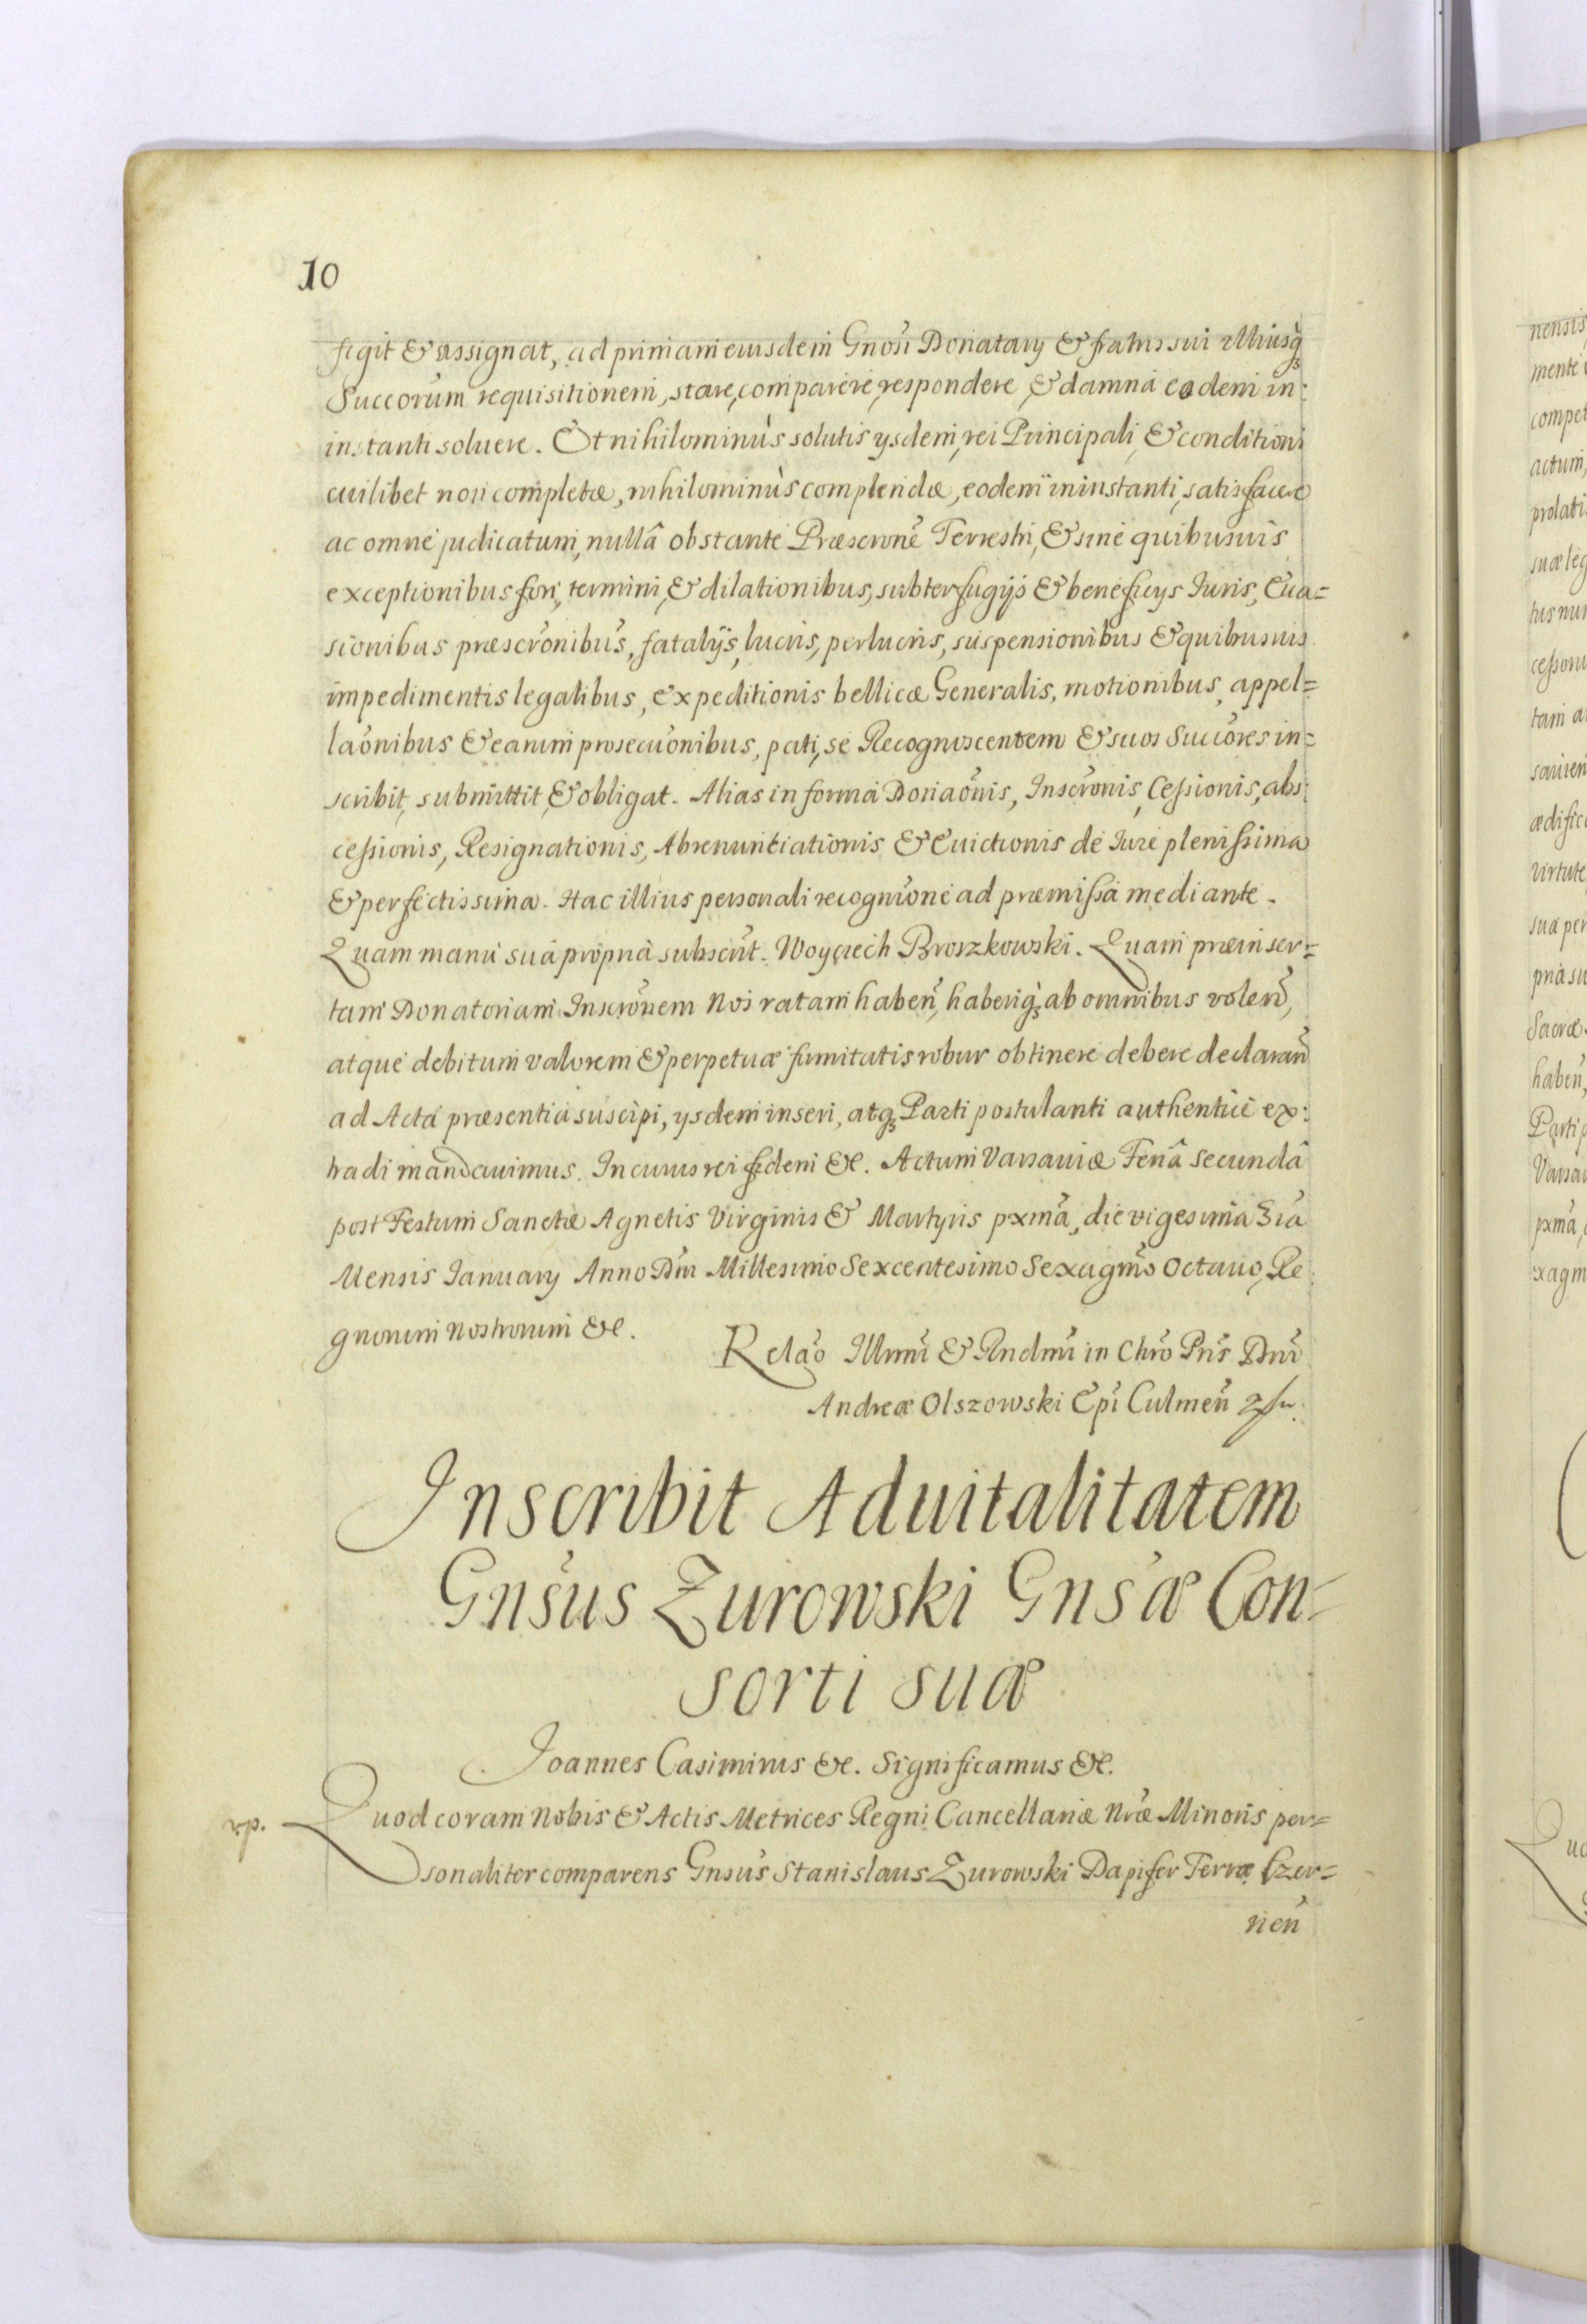 10
figit & assignat, ad primam eiusdem Gnosi Donatary & fratris sui illiusq̃
Succorum requisitionem, stare, comparere, respondere, & damna eodem in:
instanti soluere. Et nihilominùs solutis ysdem, rei Principali, & conditioni
cuilibet non completæ, nihilominùs complendæ, eodem in instanti, satisfacere
ac omne judicatum, nullâ obstante Præscrone Terrestri, & sine quibusuis
exceptionibus fori, termini, & dilationibus, subterfugijs & beneficys Iuris, Eua=
sionibus præscronibus, fatalijs, lucris, perlucris, suspensionibus & quibusuis
impedimentis legalibus, expeditionis bellicæ Generalis, motionibus, appel=
laonibus & earum prosecuonibus, pati, se Recognoscentem & suos Succores in=
scribit, submittit, & obligat. Alias in forma Donaonis, Inscronis, Cessionis, abs:
cessionis, Resignationis, Abrenuntiationis & Euictionis de Iure plenissima
& perfectissima. Hac illius personali recognione ad præmissa mediante.
Quam manu sua propria subscrit. Woyciech Broszkowski. Quam præinser=
tam Donatoriam Inscronem Nos ratam haben, haberiq̃ ab omnibus volen,
atque debitum valorem & perpetuæ firmitatis robur obtinere debere declaran
ad Acta præsentia suscipi, ysdem inseri, atq̃ Parti postulanti authentice ex:
tradi mandauimus. In cuius rei fidem &c. Actum Varsauiæ Feriâ secundâ
post Festum Sanctæ Agnetis Virginis & Martyris pxma, die vigesima 3ia
Mensis Ianuary Anno Dni Millesimo Sexcentesimo Sexagmo Octauo, Re:
gnorum nostrorum &c.
Relao Illmi & Rndmi in Chro Pris Dni
Andreæ Olszowski Epi Culmen
Inscribit Aduitalitatem
Gnsus Zurowski Gnsæ Con=
sorti suæ
Joannes Casimirus &c. Significamus &c.
rp. Quod coram Nobis & Actis Metrices Regni Cancellariæ Nræ Minoris per=
sonaliter comparens Gnsus Stanislaus Zurowski Dapifer Terræ Czer=
nen